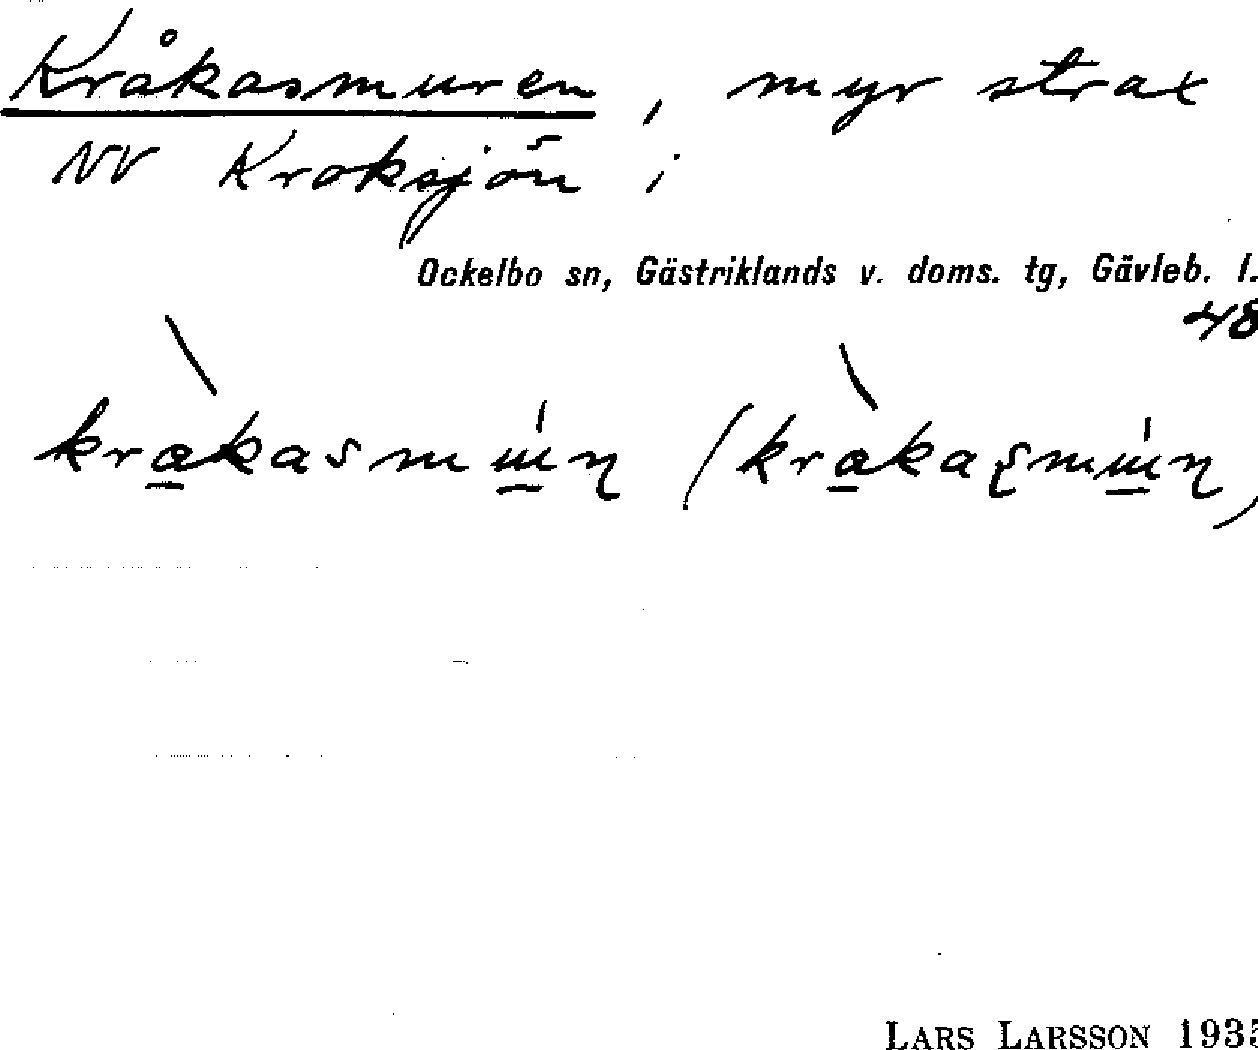 Kråkasmuren, myr strax
NV Kroksjön;
Ockelbo sn, Gästriklands v. doms. tg, Gävleb. l.
48
LARS LARSSON 1935